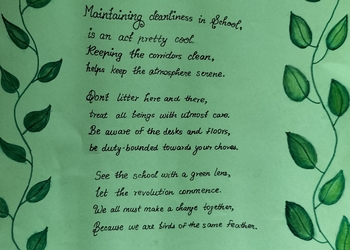 Maintaining cleanliness in School,
is an act pretty cool.
Keeping the corridors clean,
helps keep the atmosphere serene.
Don't litter here and there,
treat all beings with utmost care.
Be aware of the desks and floors,
be duty-bounded towards your chores.
See the school with a green lens,
let the revolution commence.
We all must make a change together,
Because we are birds of the same feather.